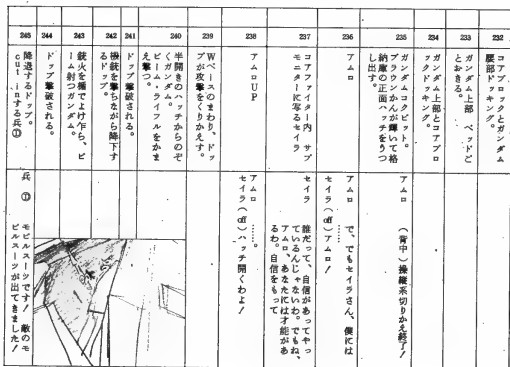 232
コアブロックとガンダム
腰部ドッキング。
233
ガンダム上部 ベッドご
とおきる。
234
ガンダム上部とコアブロ
ックドッキング。
235
ガンダムコクピット。
ブラウンかんが輝いて格
納庫の正面ハッチをうつ
し出す。
アムロ
(背中)操縦系切りかえ終了!
236
アムロ
アムロ
で、でもセイラさん、僕には
……
セイラ(off)アムロ!
237
コアファイター内 サブ
モニターに写るセイラ
セイラ
誰だって、自信があってやっ
ているんじゃないわ。でもね、
アムロ、あなたには才能があ
るわ。自信をもって
238
アムロUP
アムロ
……。
セイラ(off)ハッチ開くわよ!
239
Wベースのまわり、ドッ
プが攻撃をくりかえす。
240
半開きのハッチからのぞ
くガンダム。
ビーム・ライフルをかま
え撃つ。
241
ドップ撃破される。
242
機銃を撃ちながら降下す
るドップ。
243
銃火を楯でよけ乍ら、ビ
ーム射つガンダム。
244
ドップ撃破される。
245
降進するドップ。
cut inする兵Ⓓ
兵Ⓓ
モビルスーツです!敵のモ
ビルスーツが出てきました!